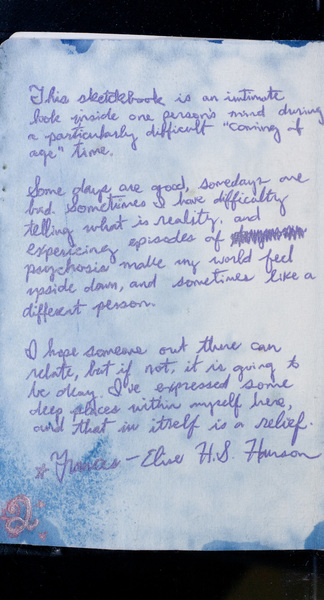 This sketchbook is an intimate
look inside one person's mind during
a particularly difficult "coming of
age" time.
Some days are good, somedays are
bad. Sometimes I have difficulty
telling what is reality, and
expericing episodes of
psychosis make my world feel
upside down, and sometimes like a
different person.
I hope someone out there can
relate, but if not, it is going to
be okay. I've expressed some
deep places within myself here,
and that in itself is a relief.
— Elise H.S. Hanson